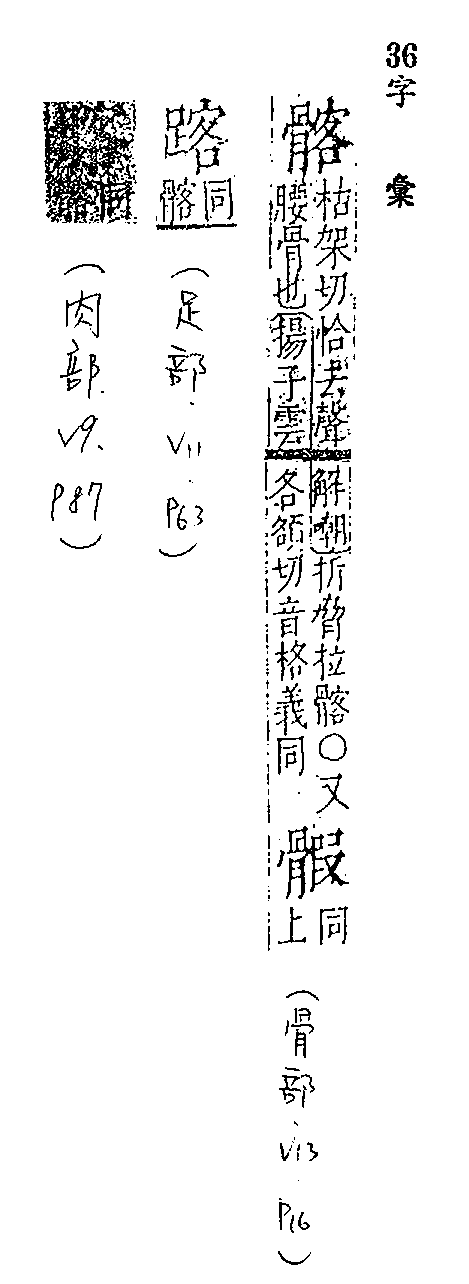 36字彙
髂
枯架切恰去聲
腰骨也揚子雲
解嘲折脅拉髂○又
各額切音格義同
同
上
(骨部.V13.P16)
同
髂
(足部.V11.P63)
同
(肉部.V9.P87)